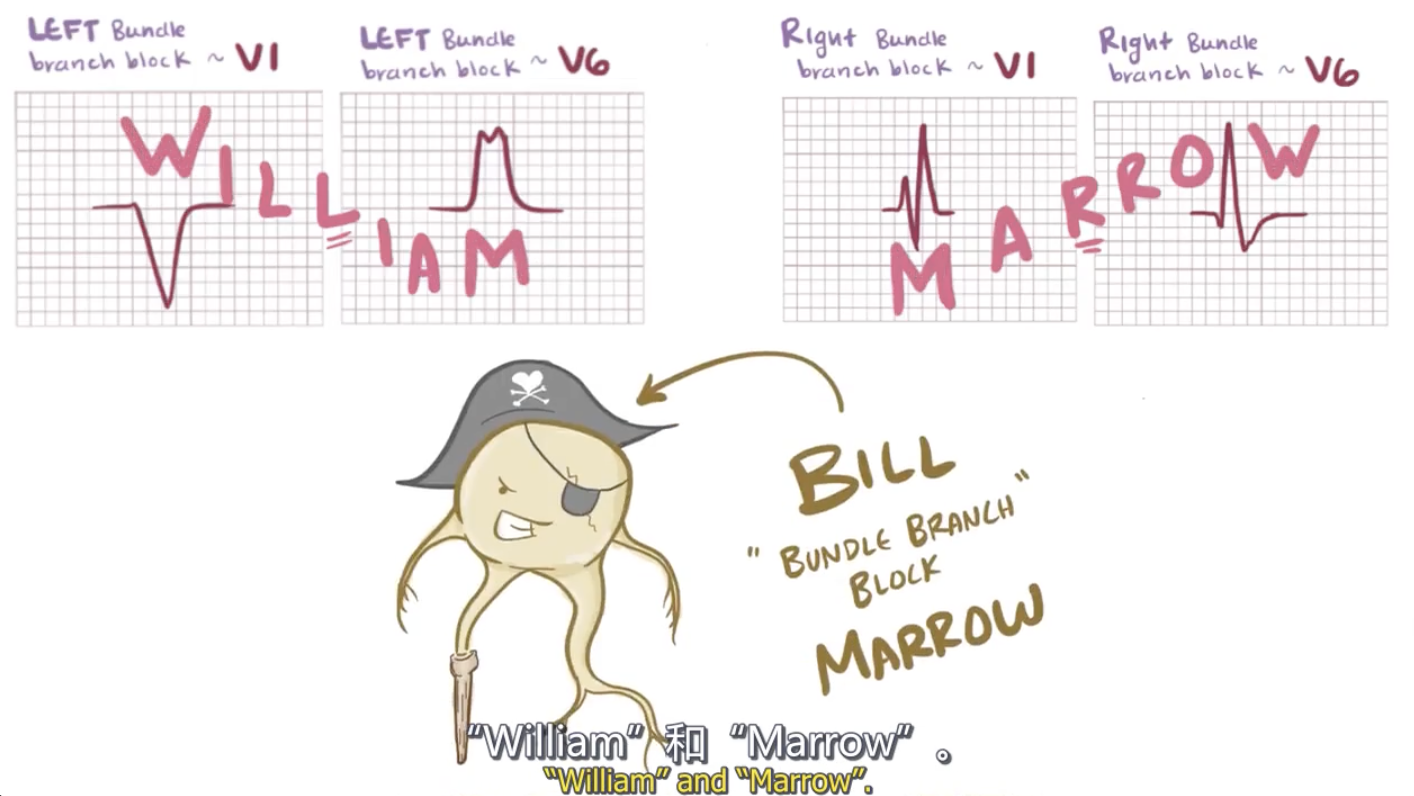 LEFT Bundle
branch block ~ V1
LEFT Bundle
branch block ~ V6
Right Bundle
branch block ~ V1
Right Bundle
branch block ~ V6
WILLIAM
MARROW
BILL
"BUNDLE BRANCH"
BLOCK
MARROW
“William” 和 “Marrow” 。
“William” and “Marrow”.